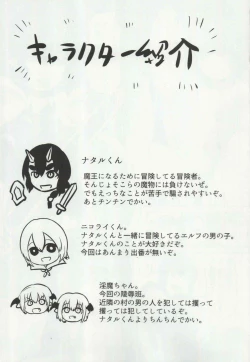 キャラクター紹介
ナタルくん
魔王になるために冒険してる冒険者。
そんじょそこらの魔物には負けないぞ。
でもえっちなことが苦手で騙されやすいぞ。
あとチンチンでかい。
ニコライくん
ナタルくんと一緒に冒険してるエルフの男の子。
ナタルくんのことが大好きだぞ。
今回はあんまり出番が無いぞ。
淫魔ちゃん。
今回の陵辱班。
近隣の村の男の人を犯しては攫って
攫っては犯してしているぞ。
ナタルくんよりちんちんでかい。